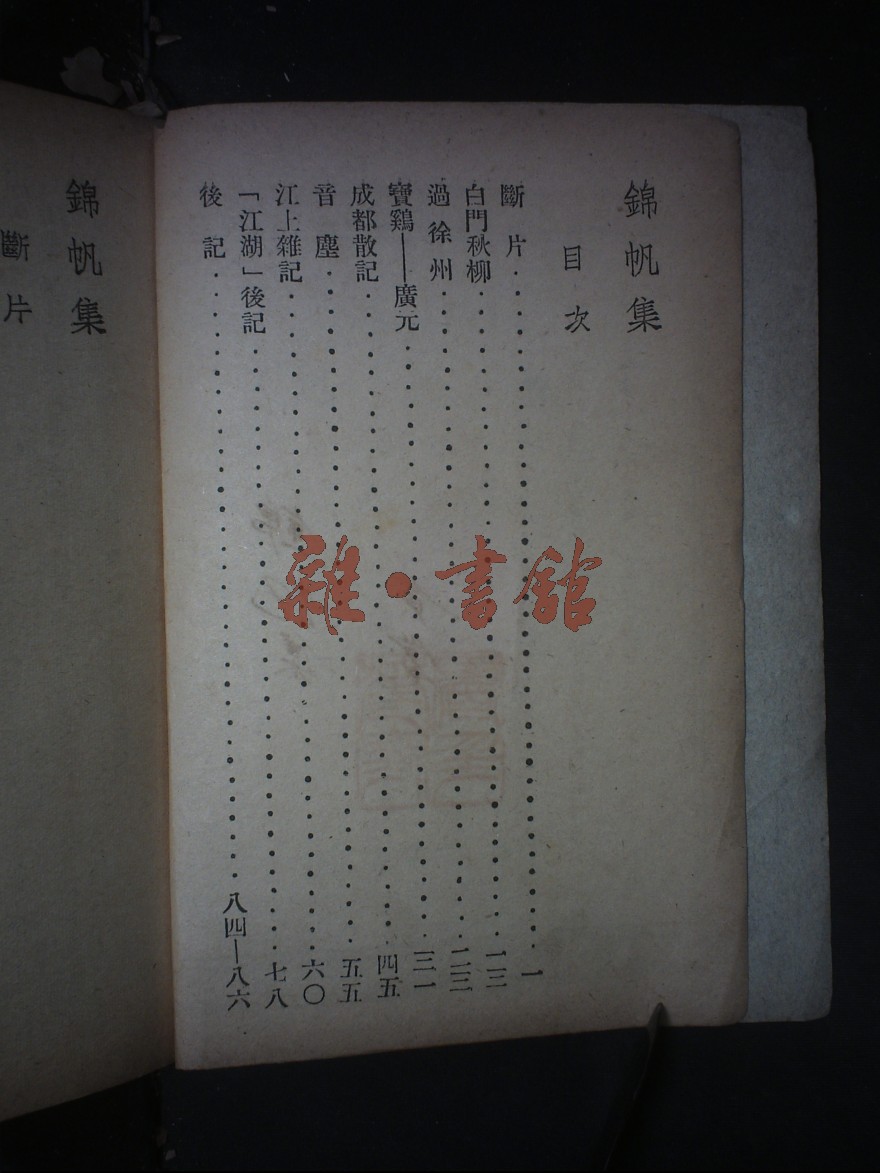 錦帆集
目次
斷片一
白門秋柳一三
過徐州二三
寶鷄——廣元三一
成都散記四五
音塵五五
江上雜記六〇
「江湖」後記七八
後記八四—八六
雜·書館
錦帆集
斷片